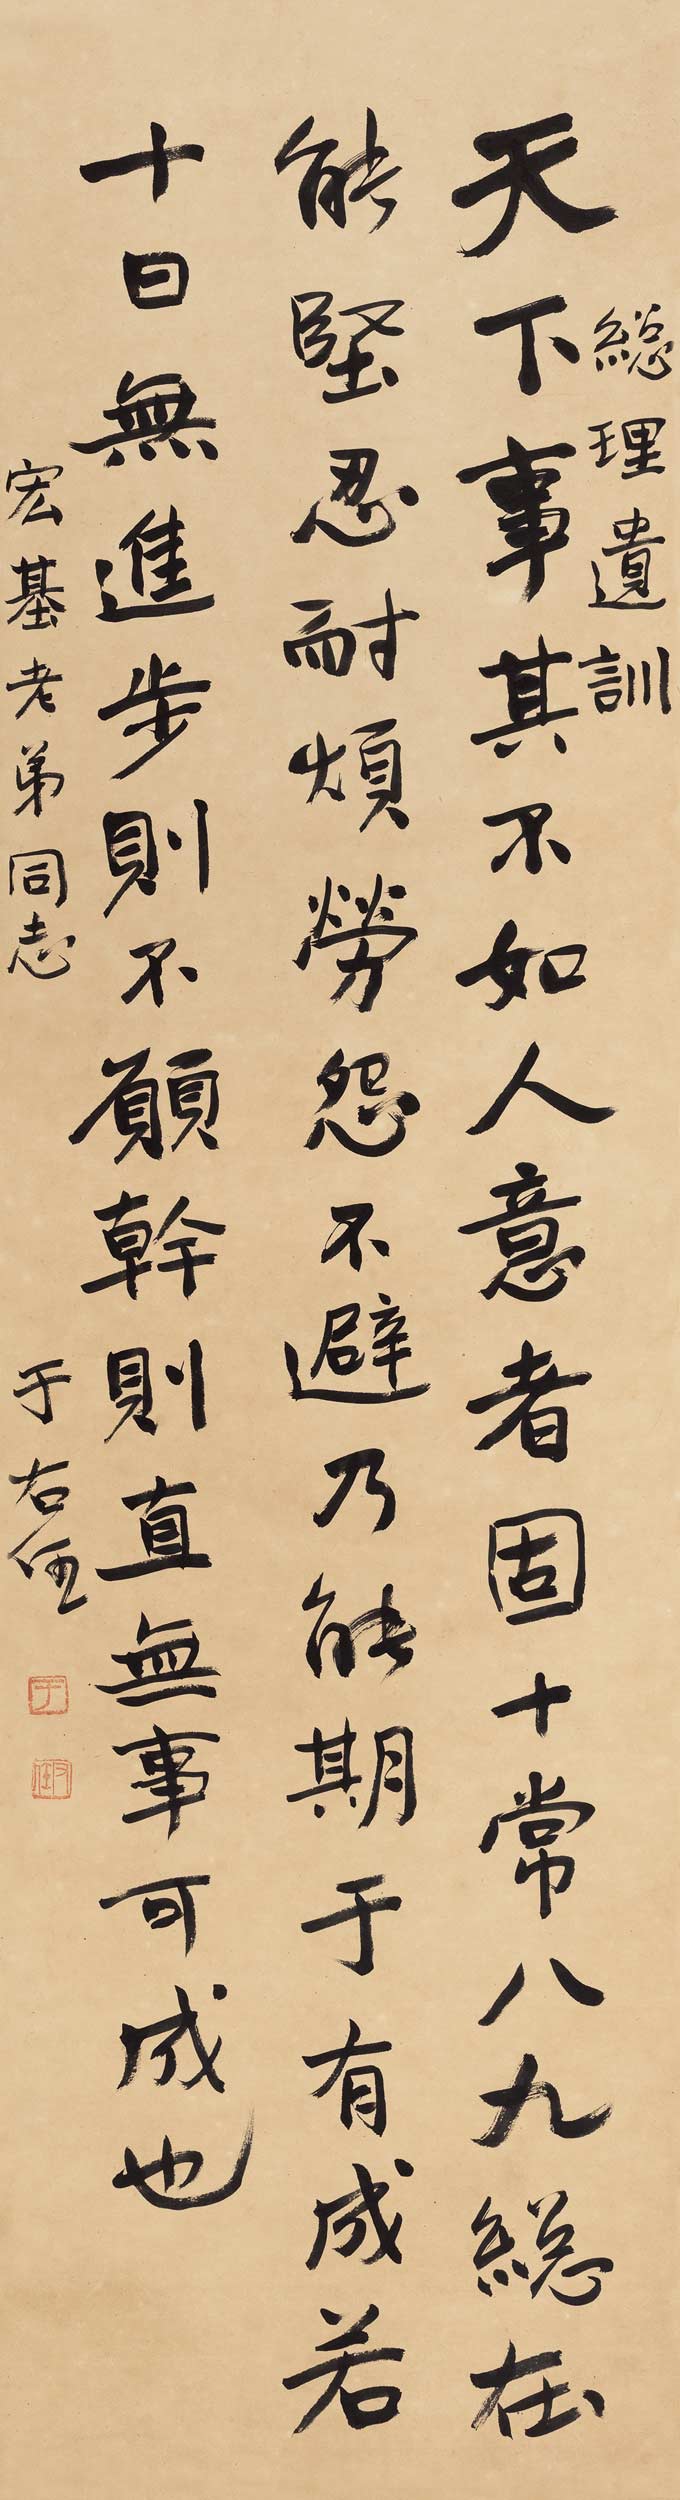 總理遺訓
天下事其不如人意者固十常八九總在
能堅忍耐煩勞怨不避乃能期于有成若
十日無進步則不願幹則直無事可成也
宏基老弟同志
于右任